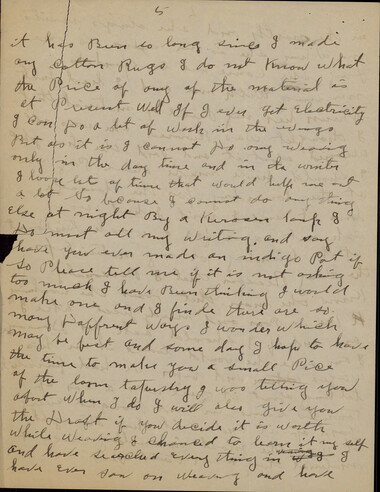 5
it has Bin so long since I made
any cotton Rugs I do not Know What
the Price of any of the material is
at Present Well If I ever get Electricity
I can Do a lot of Work in the evings
But as it is I cannot Do any weaving
only in the day time and in the winter
I loose lot of time that would help me out
a lot So because I cannot do any thing
Else at night By a Kerosen lamp I
Do most all my Writing. and say
have you ever made an indigo Pot if
So Please tell me if it is not asking
too much I have Bin thinking I would
make one and I finde there are so
many Diffrent Ways I wonder which
may be best and some day I hope to have
the time to make you a small Pice
of the loom tapestry I was telling you
about When I do I will also give you
the Draft if you decide it is worth
while Weaving I chanced to learn it my self
and have searched every thing in I
have ever saw on Weaving and have